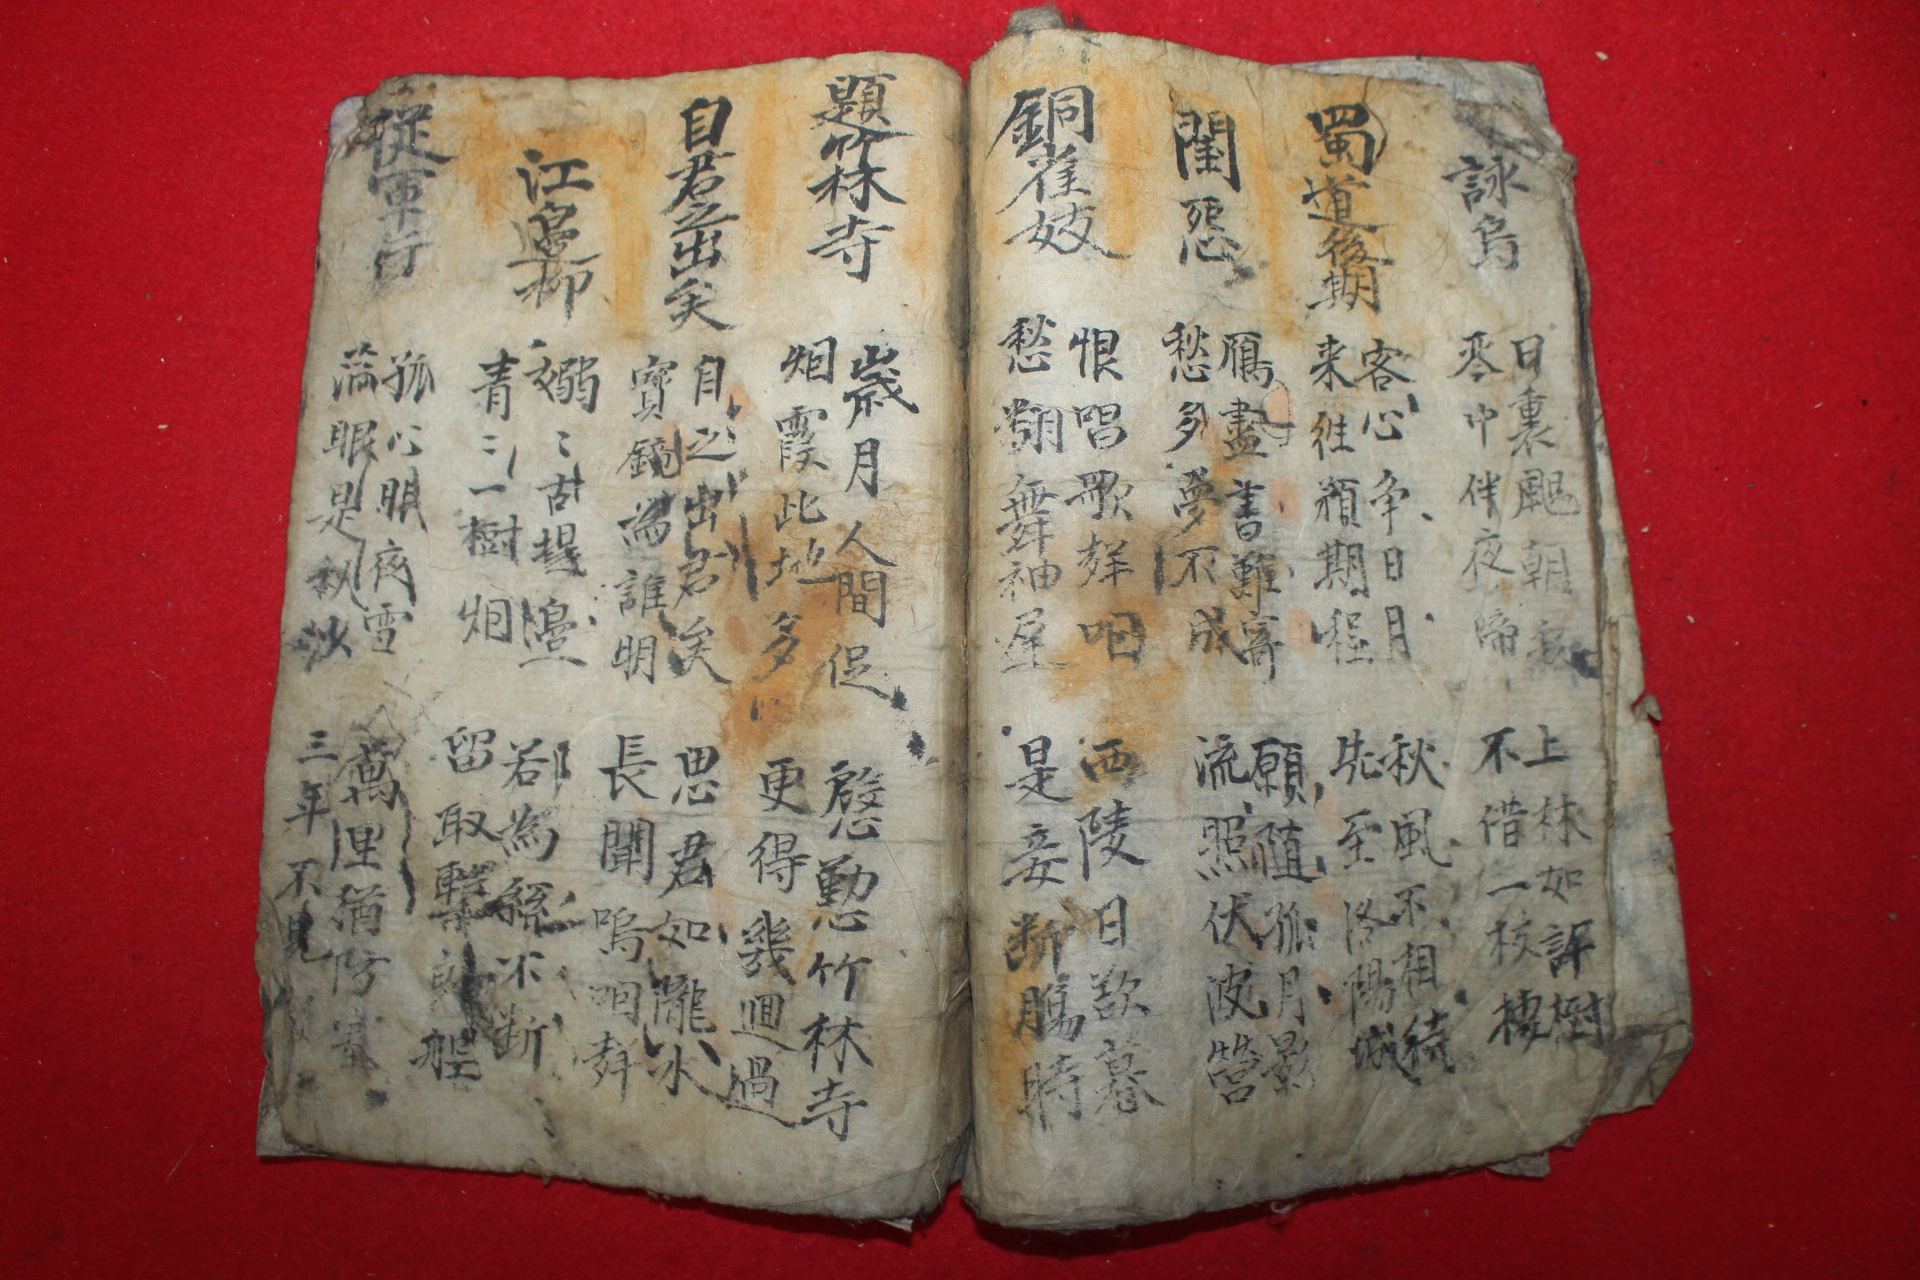 詠烏
日裏颺朝彩
琴中伴夜啼
上林如許樹
不借一枝棲
蜀道後期
客心争日月
来往預期程
秋風不相待
先至洛陽城
閨怨
鴈盡書難寄
愁多夢不成
願隨孤月影
流照伏波營
銅雀妓
恨唱歌聲咽
愁翻舞袖遲
西陵日欲暮
是妾断膓時
題竹林寺
歲月人間促
烟霞此地多
慇懃竹林寺
更得幾迴過
自君之出矣
自之出君矣
寶鏡為誰明
思君如隴水
長聞嗚咽聲
江邊柳
嫋〻古堤邊
青〻一樹烟
若為絲不断
留取繫郎船
從軍行
孤心眠夜雪
滿眼是秋沙
萬里猶防塞
三年不見